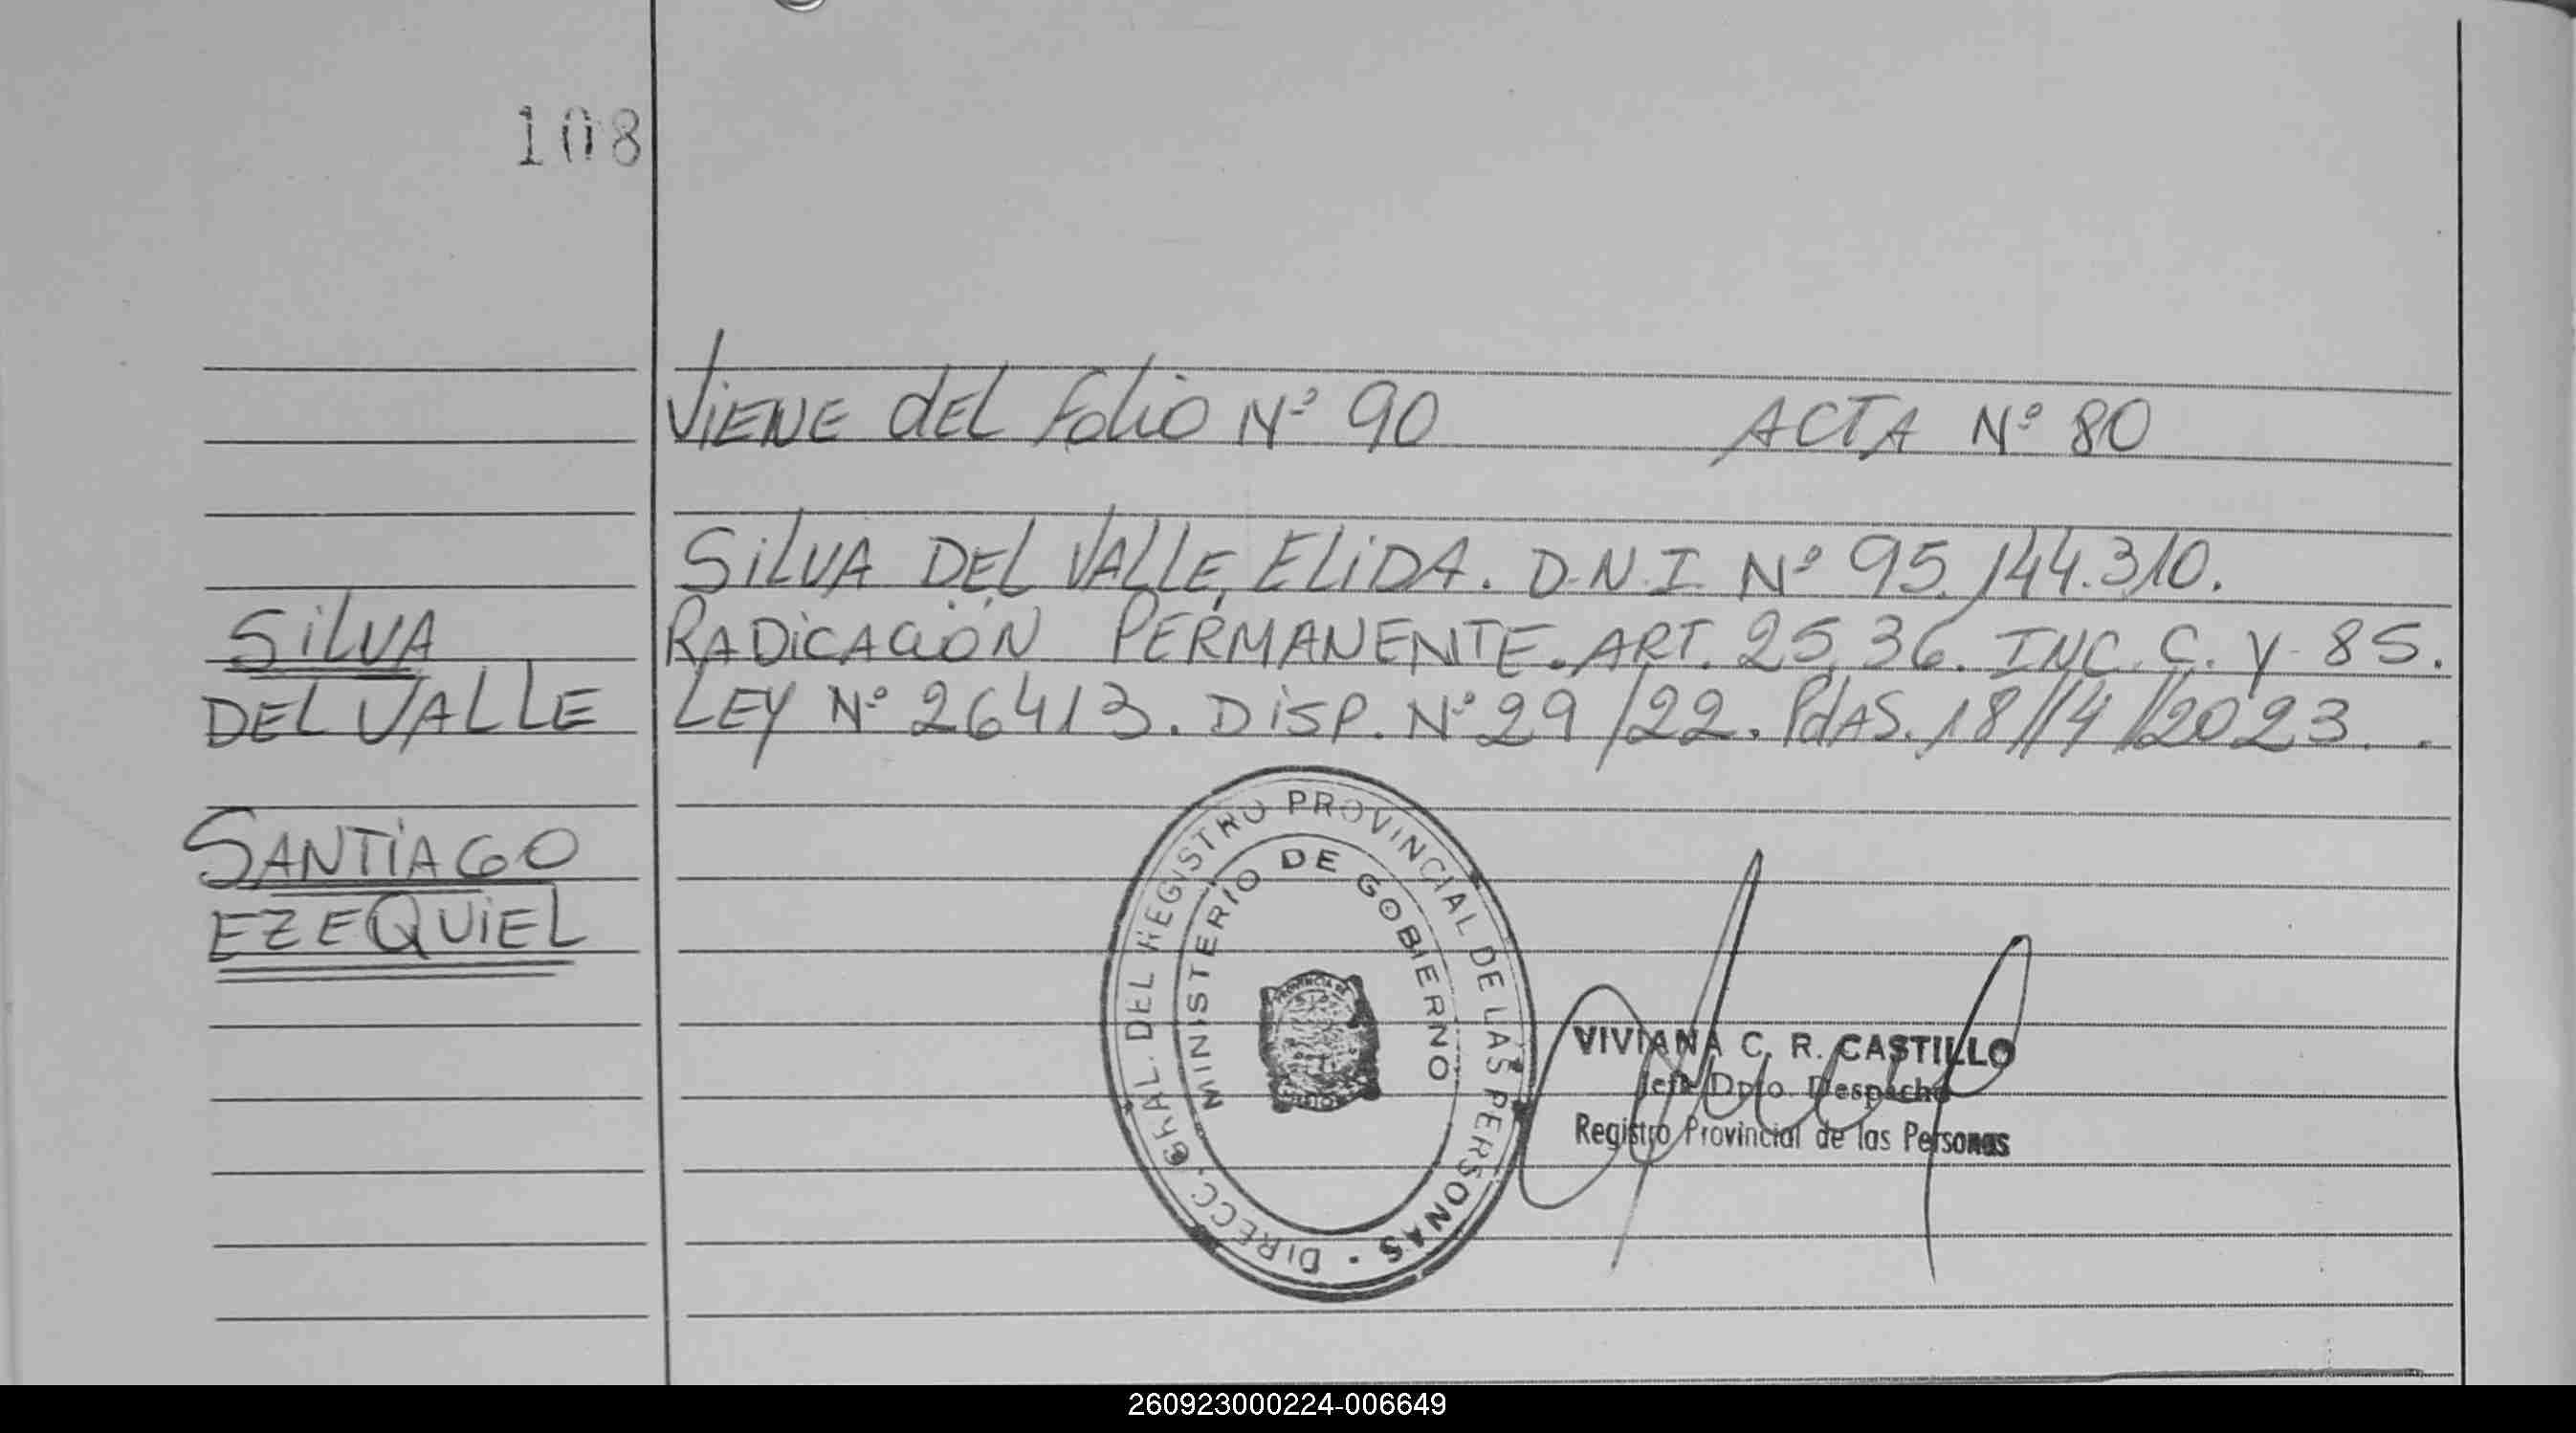 108
VIENE DEL FOLIO Nº 90 ACTA Nº 80
SILVA DEL VALLE, ELIDA. D.N.I. Nº 95.144.310.
RADICACIÓN PERMANENTE. ART. 25, 36. INC. C. Y 85.
LEY Nº 26413. DISP. Nº 29/22. PdAS. 18//4//2023. .
SILVA
DEL VALLE
SANTIAGO
EZEQUIEL
DIRECC. GRAL. DEL REGISTRO PROVINCIAL DE LAS PERSONAS
MINISTERIO DE GOBIERNO
VIVIANA C. R. CASTILLO
Jefa Dpto. Despacho
Registro Provincial de las Personas
260923000224-006649